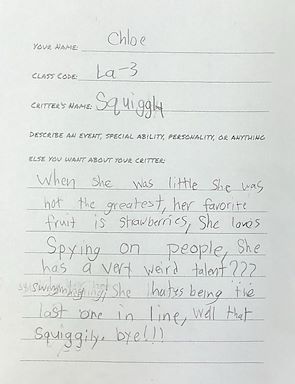 YOUR NAME: Chloe
CLASS CODE: La-3
CRITTER'S NAME: Squiggly
DESCRIBE AN EVENT, SPECIAL ABILITY, PERSONALITY, OR ANYTHING
ELSE YOU WANT ABOUT YOUR CRITTER:
When she was little she was
not the greatest, her favorite
fruit is strawberries, She loves
Spying on people, She
has a very weird talent???
She hates being the
last one in line, well that
Squiggily. bye!!!